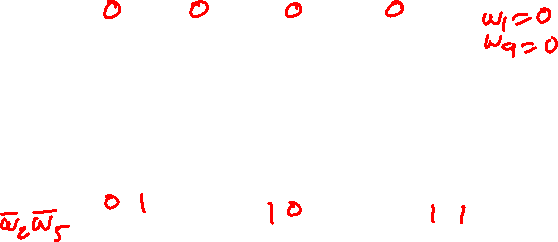 0 0 0 0 w₁=0
w₉=0
w̅₂w̅₅ 01 10 11